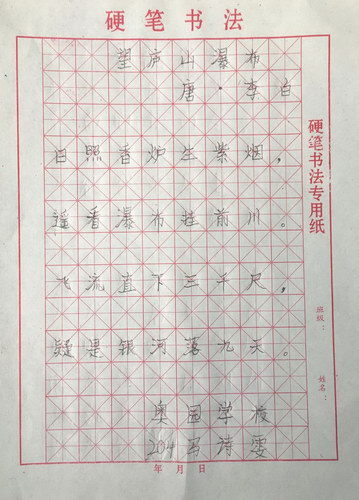 硬笔书法
望庐山瀑布
唐·李白
日照香炉生紫烟，
遥看瀑布挂前川。
飞流直下三千尺，
疑是银河落九天。
奥园学校
204 马诗雯
年月日
硬笔书法专用纸
班级：
姓名：